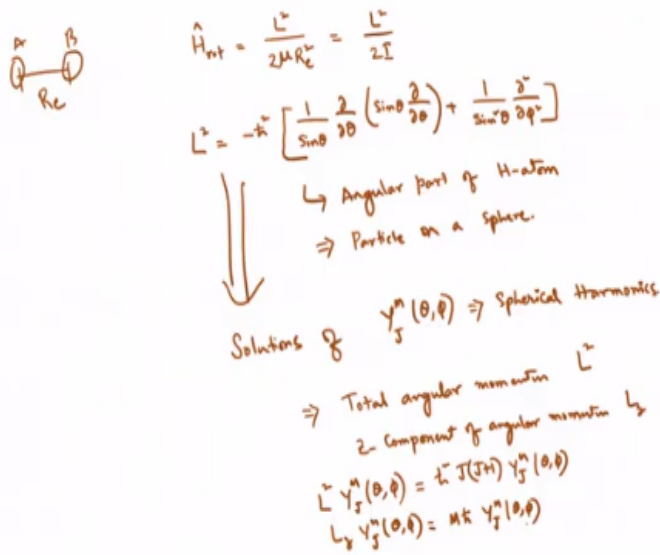 A B
R_e
Ĥ_rot = L² / 2μR_e² = L² / 2I
L² = -ħ² [ 1/sinθ ∂/∂θ ( sinθ ∂/∂θ ) + 1/sin²θ ∂²/∂φ² ]
↳ Angular part of H-atom
⇒ Particle on a sphere.
Solutions of Y_J^M (θ,φ) ⇒ Spherical Harmonics
⇒ Total angular momentum L²
z-component of angular momentum L_z
L² Y_J^M (θ,φ) = ħ² J(J+1) Y_J^M (θ,φ)
L_z Y_J^M (θ,φ) = Mħ Y_J^M (θ,φ)